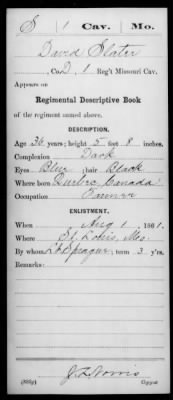 S | 1 | Cav. | Mo.
David Slater
, Co. D, 1 Reg't Missouri Cav.
Appears on
Regimental Descriptive Book
of the regiment named above.
DESCRIPTION.
Age 36 years; height 5 feet 8 inches.
Complexion Dark
Eyes Blue; hair Black
Where born Quebec Canada
Occupation Farmer
ENLISTMENT.
When Aug 1, 1861.
Where St. Louis, Mo.
By whom Lt Sprague; term 3 y'rs.
Remarks:
J. L. Norris
(385g) Copyist